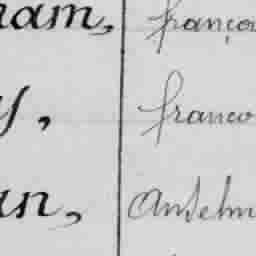 ham, françoi
y, franco
an, Anselm